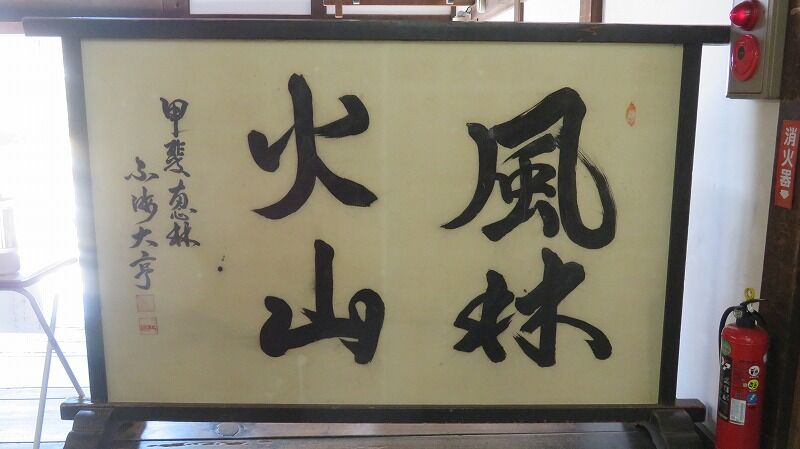 風林
火山
甲斐恵林
不渉大亨
消火器